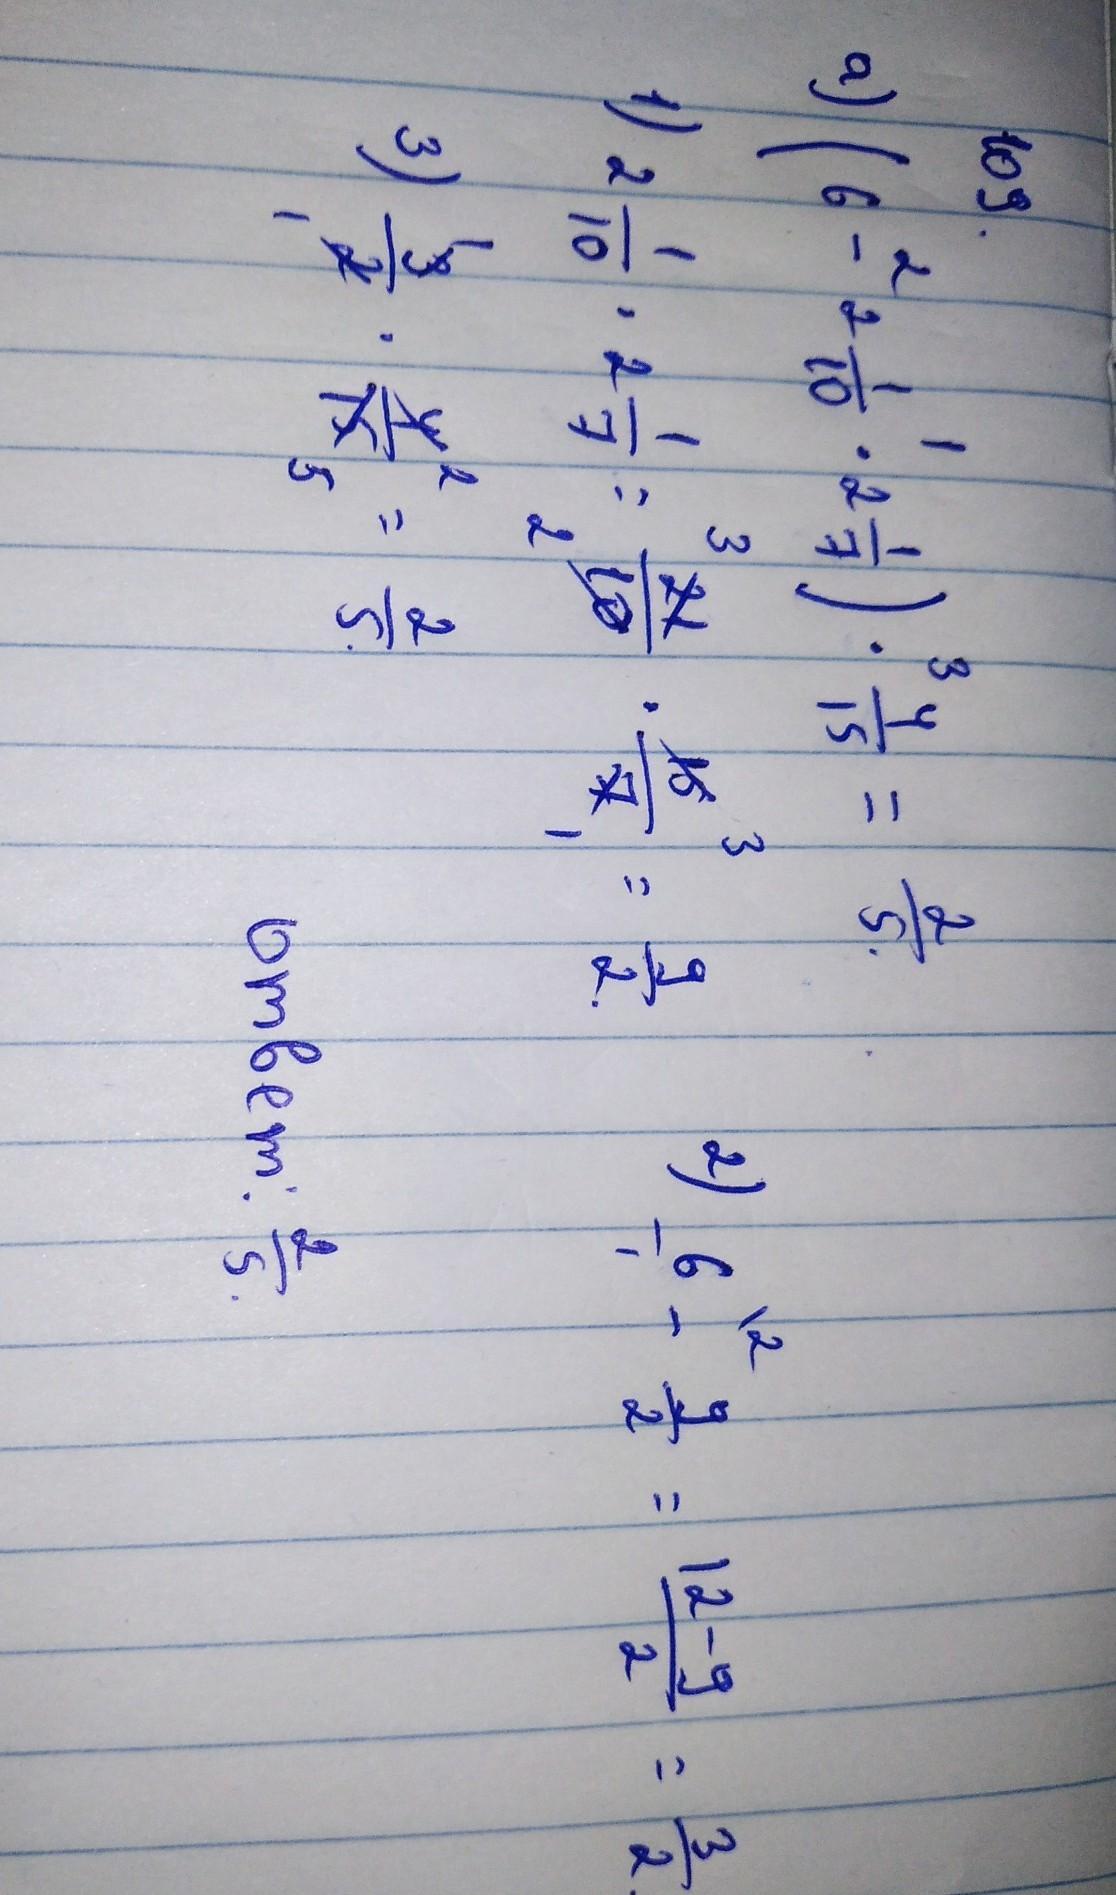 109.
а) (6 - 2 1/10 · 2 1/7) · 4/15 = 2/5.
1) 2 1/10 · 2 1/7 = 21/10 · 15/7 = 9/2.
2) 6/1 - 9/2 = (12-9)/2 = 3/2.
3) 3/2 · 4/15 = 2/5.
Ответ: 2/5.